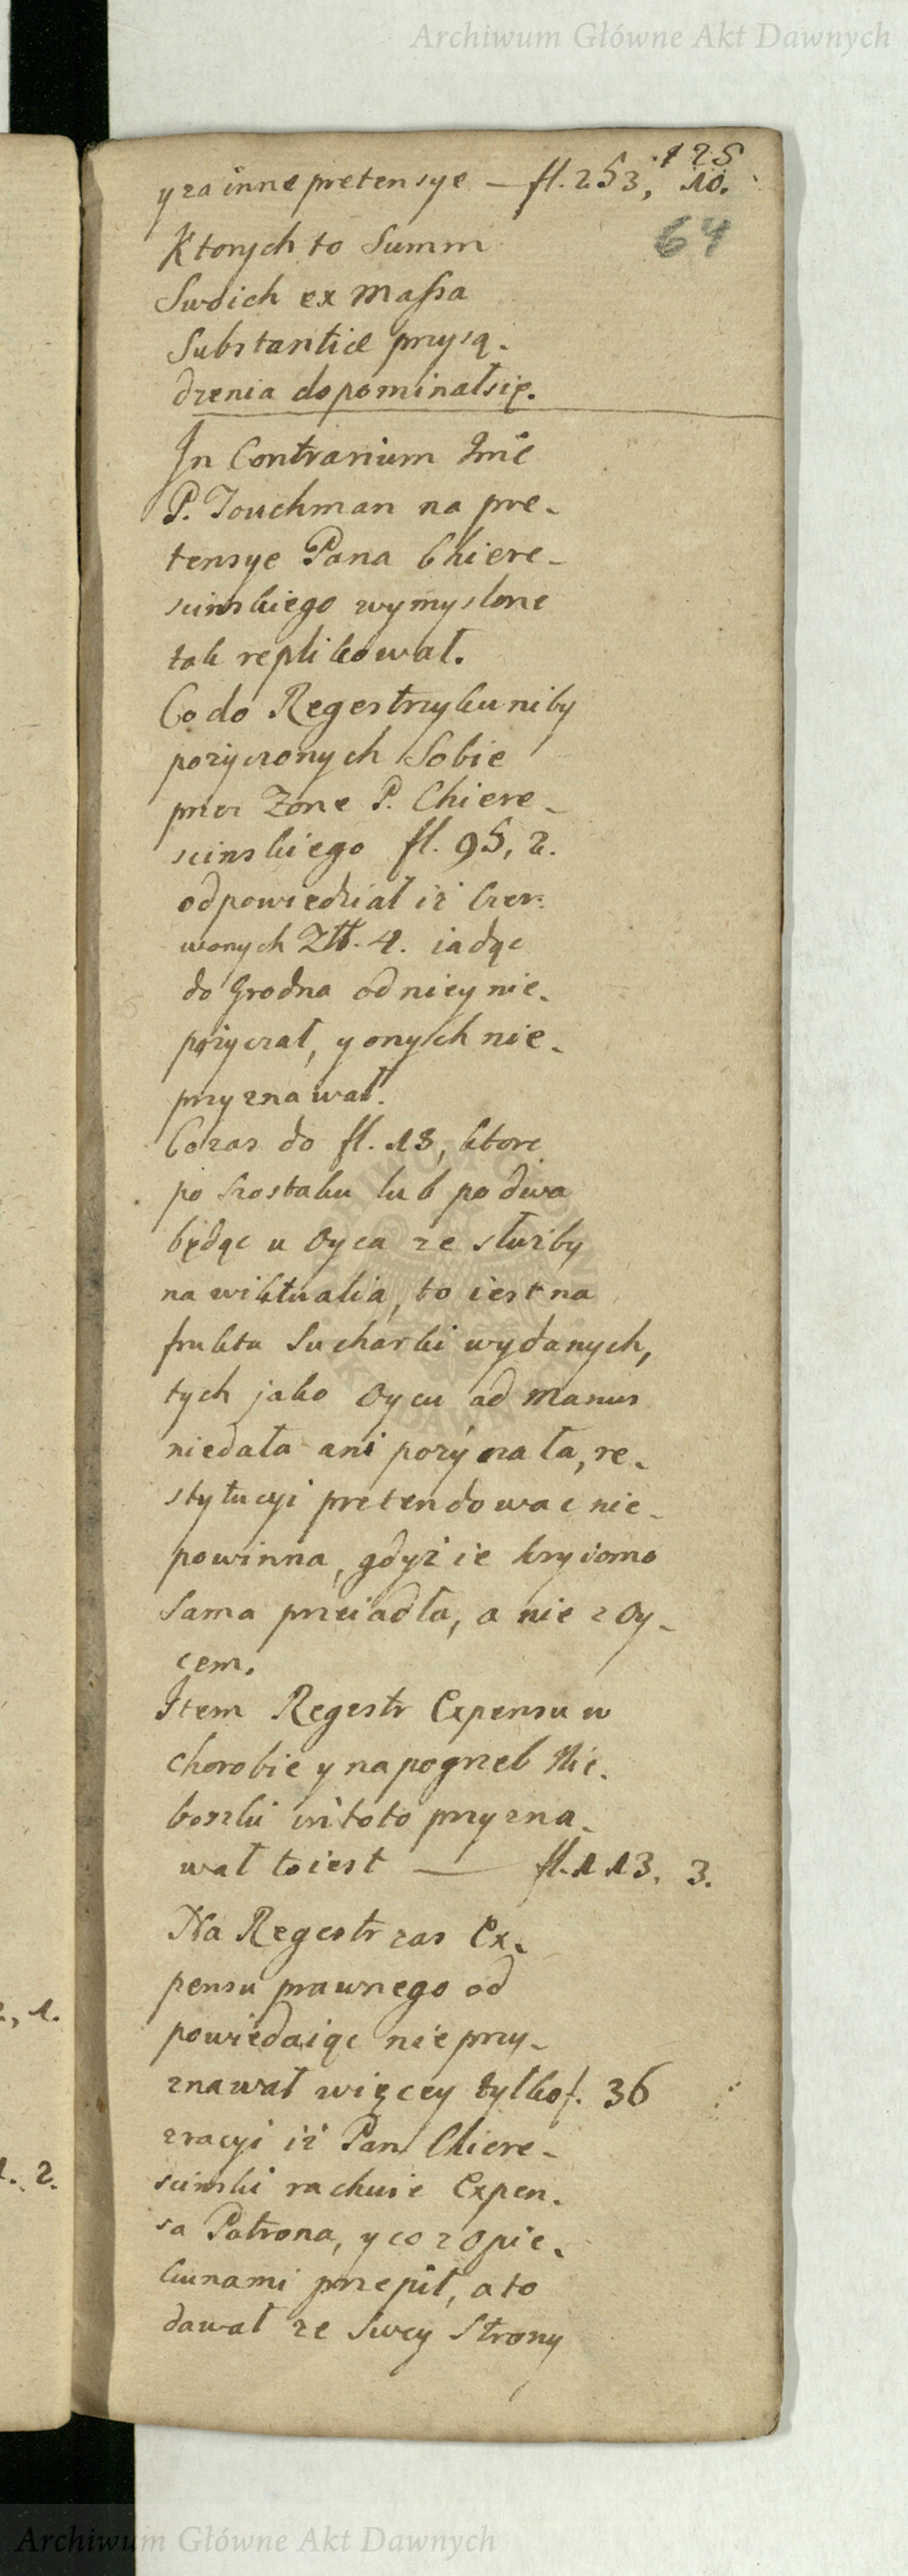 Archiwum Główne Akt Dawnych
125
y za inne pretensye — fl. 253, 10.
64
Ktorych to Summ
Swoich ex Massa
Substantiæ przysą-
dzenia dopominał się.
In Contrarium Jmć
P. Jouchman na pre-
tensye Pana Chiere-
scinskiego wymyslone
tak replikował.
Co do Regestrzyku niby
pozyczonych Sobie
przez Zone P. Chiere-
scinskiego fl. 95, 2.
odpowiedział iż Czer-
wonych Złł. 4. iadąc
do Grodna od niey nie-
pożyczał, y onych nie-
przyznawał.
Co zas do fl. 18, ktore
po szostaku lub po dwa
będąc u Oyca ze służby
na wiktualia, to iest na
frukta Sucharki wydanych,
tych jako Oycu ad Manus
niedała ani pożyczała, re-
stytucyi pretendowac nie-
powinna, gdyż ie kryiomo
Sama przeiadła, a nie z Oy-
cem.
Item Regestr Expensu w
chorobie y na pogrzeb Nie-
boszki in toto przyzna-
wał to iest — fl. 113. 3.
Na Regestr zas Ex-
pensu prawnego od
powiedaiąc nie przy-
znawał więcey tylko f. 36
z racyi iż Pan Chiere-
scinski rachuie Expen-
sa Patrona, y co z Opie-
kunami przepił, a to
dawał ze Swey Strony
, 1.
2.
Archiwum Główne Akt Dawnych